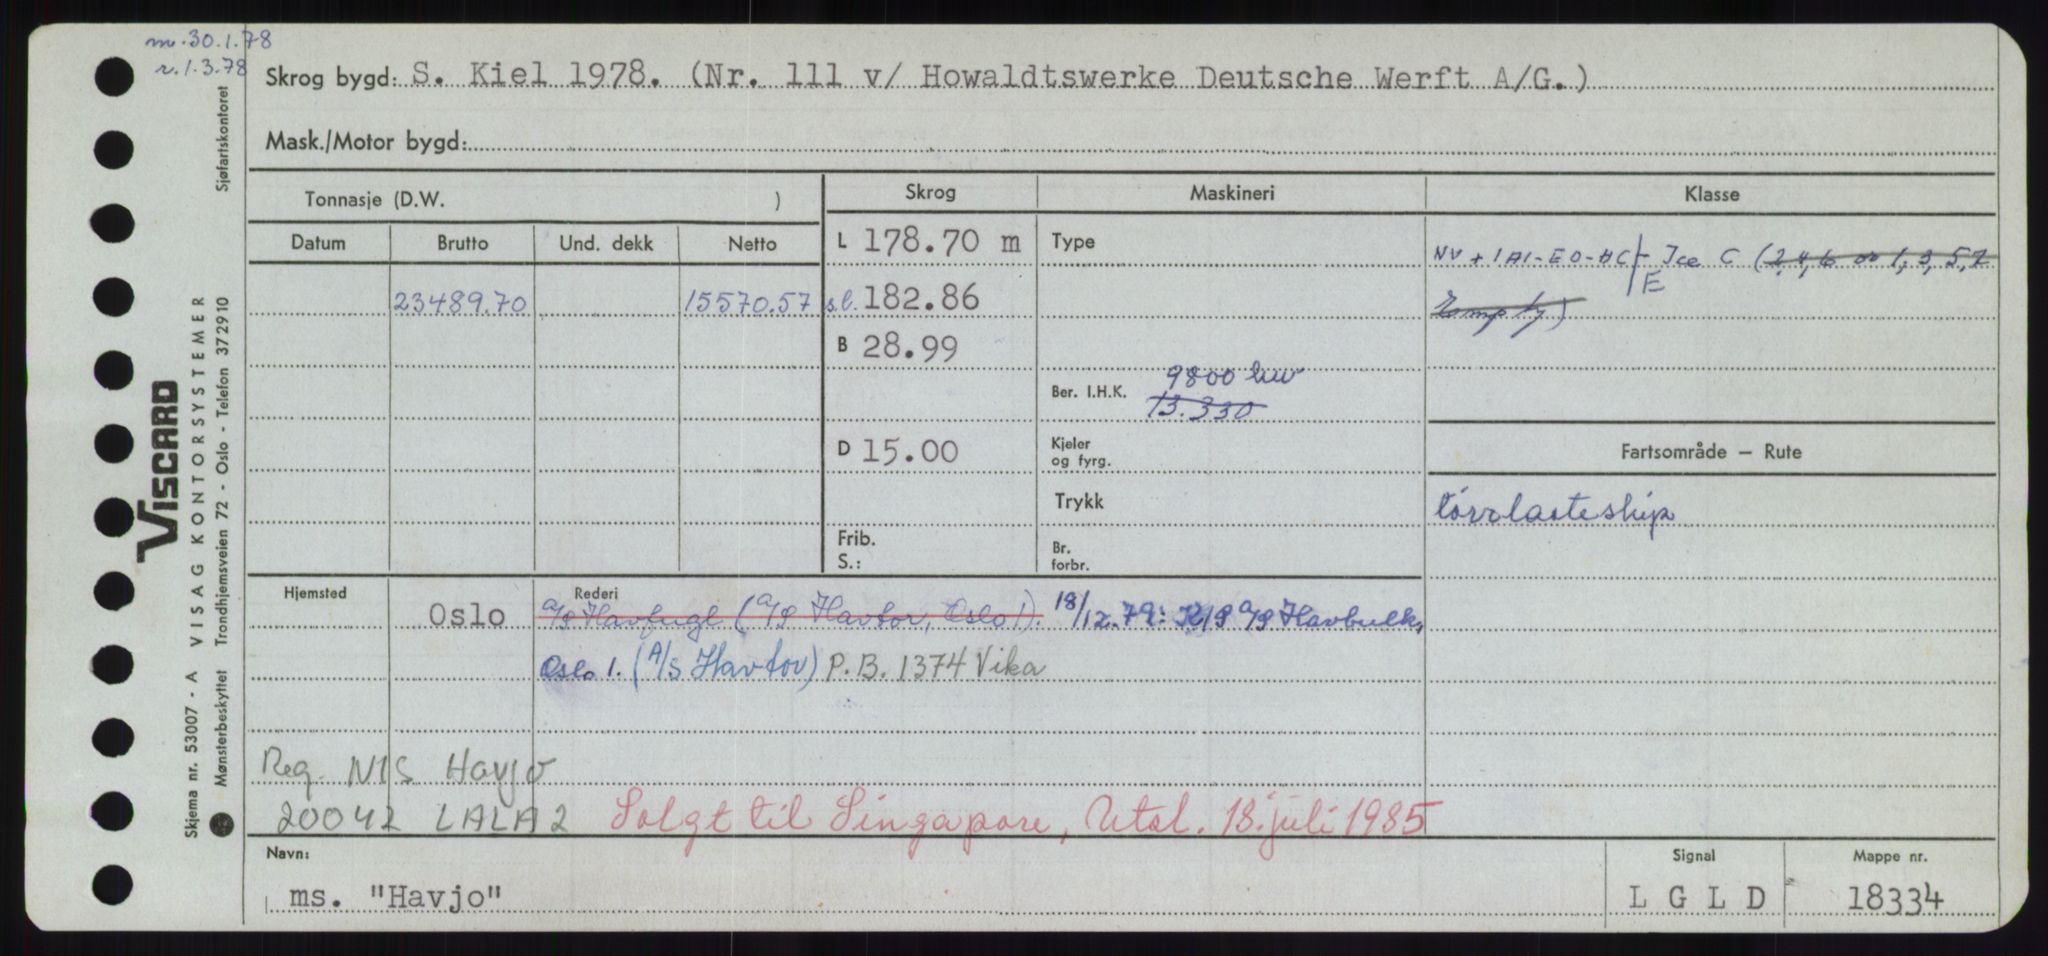 m. 30.1.78
r. 1.3.78
Skrog bygd: S. Kiel 1978. (Nr. 111 v/ Howaldtswerke Deutsche Werft A/G.)
Mask./Motor bygd:
Tonnasje (D.W. )
Skrog Maskineri Klasse
Datum Brutto Und. dekk Netto
L 178.70 m Type
NV + 1A1-EO-HC/E- Ice C (2,4,6 or 1,3,5,7
Empty)
23489.70 15570.57 s.l. 182.86
B 28.99
Ber. I.H.K. 9800 kw
13.330
D 15.00 Kjeler
og fyrg.
Fartsområde – Rute
Trykk
tørrlasteskip
Frib.
S.:
Br.
forbr.
Hjemsted Rederi
Oslo A/S Havfugl (A/S Havtor, Oslo 1). 18/12.79: K/S A/S Havbulk,
Oslo 1. (A/S Havtor) P.B. 1374 Vika
Reg. NIS Havjo
20042 LALA2 Solgt til Singapore, Utsl. 18. juli 1985
Navn: Signal Mappe nr.
ms. "Havjo" L G L D 18334
Skjema nr. 53007 - A VISAG KONTORSYSTEMER
VISCARD
Mønsterbeskyttet Trondhjemsveien 72 - Oslo - Telefon 372910 Sjøfartskontoret